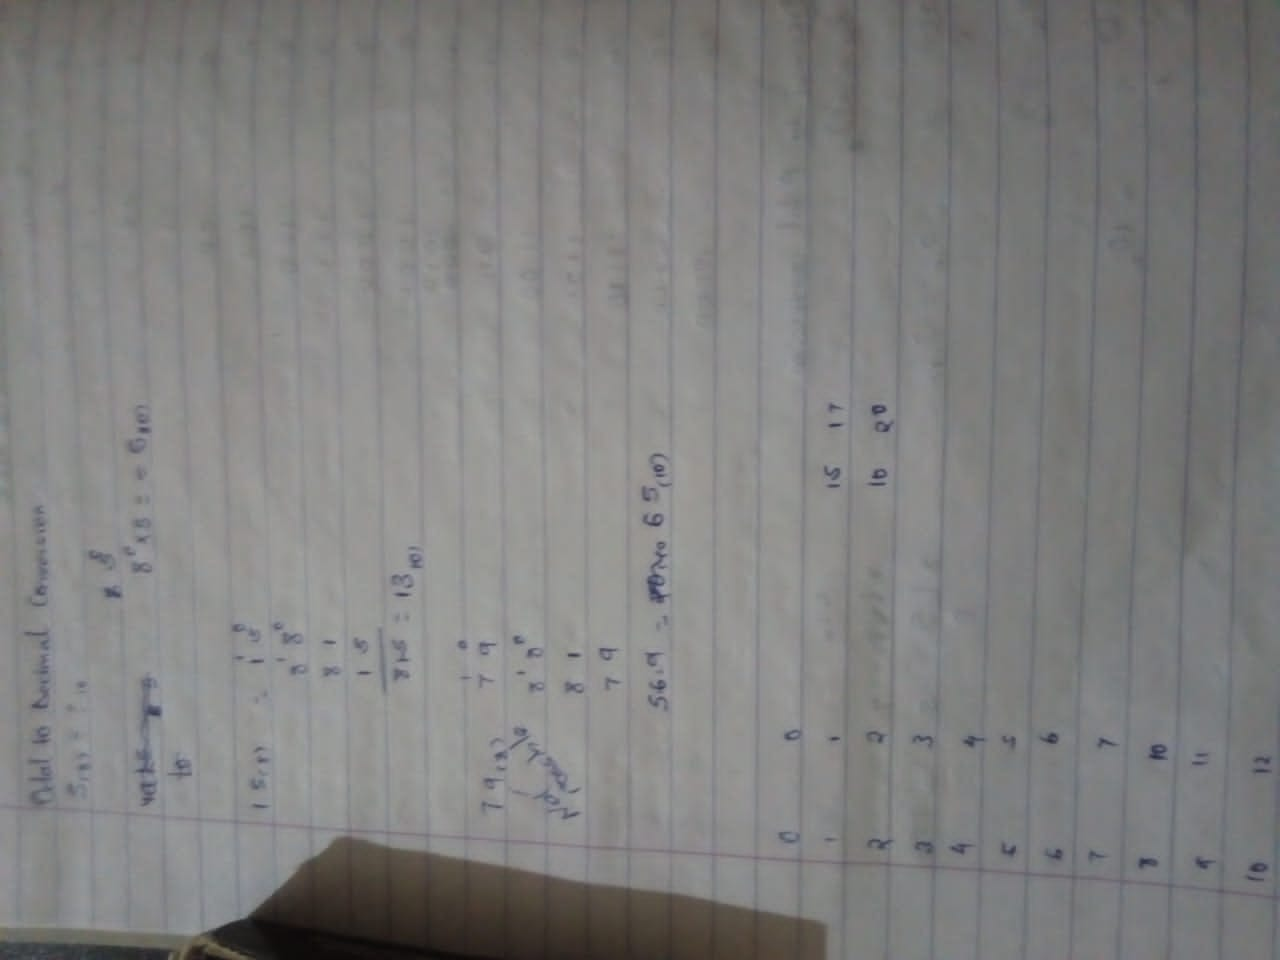 Octal to Decimal Conversion
5(8) = ? 10
8
8⁰ x 5 = 5(10)
to
15(8) = 1¹ 5⁰
8¹ 8⁰
8 1
1 5
8+5 = 13(10)
79(8) 7¹ 9⁰
8¹ 8⁰
8 1
7 9
56+9 = 65(10)
0 0
1 1 15 17
2 2 16 20
3 3
4 4
5 5
6 6
7 7
8 10
9 11
10 12